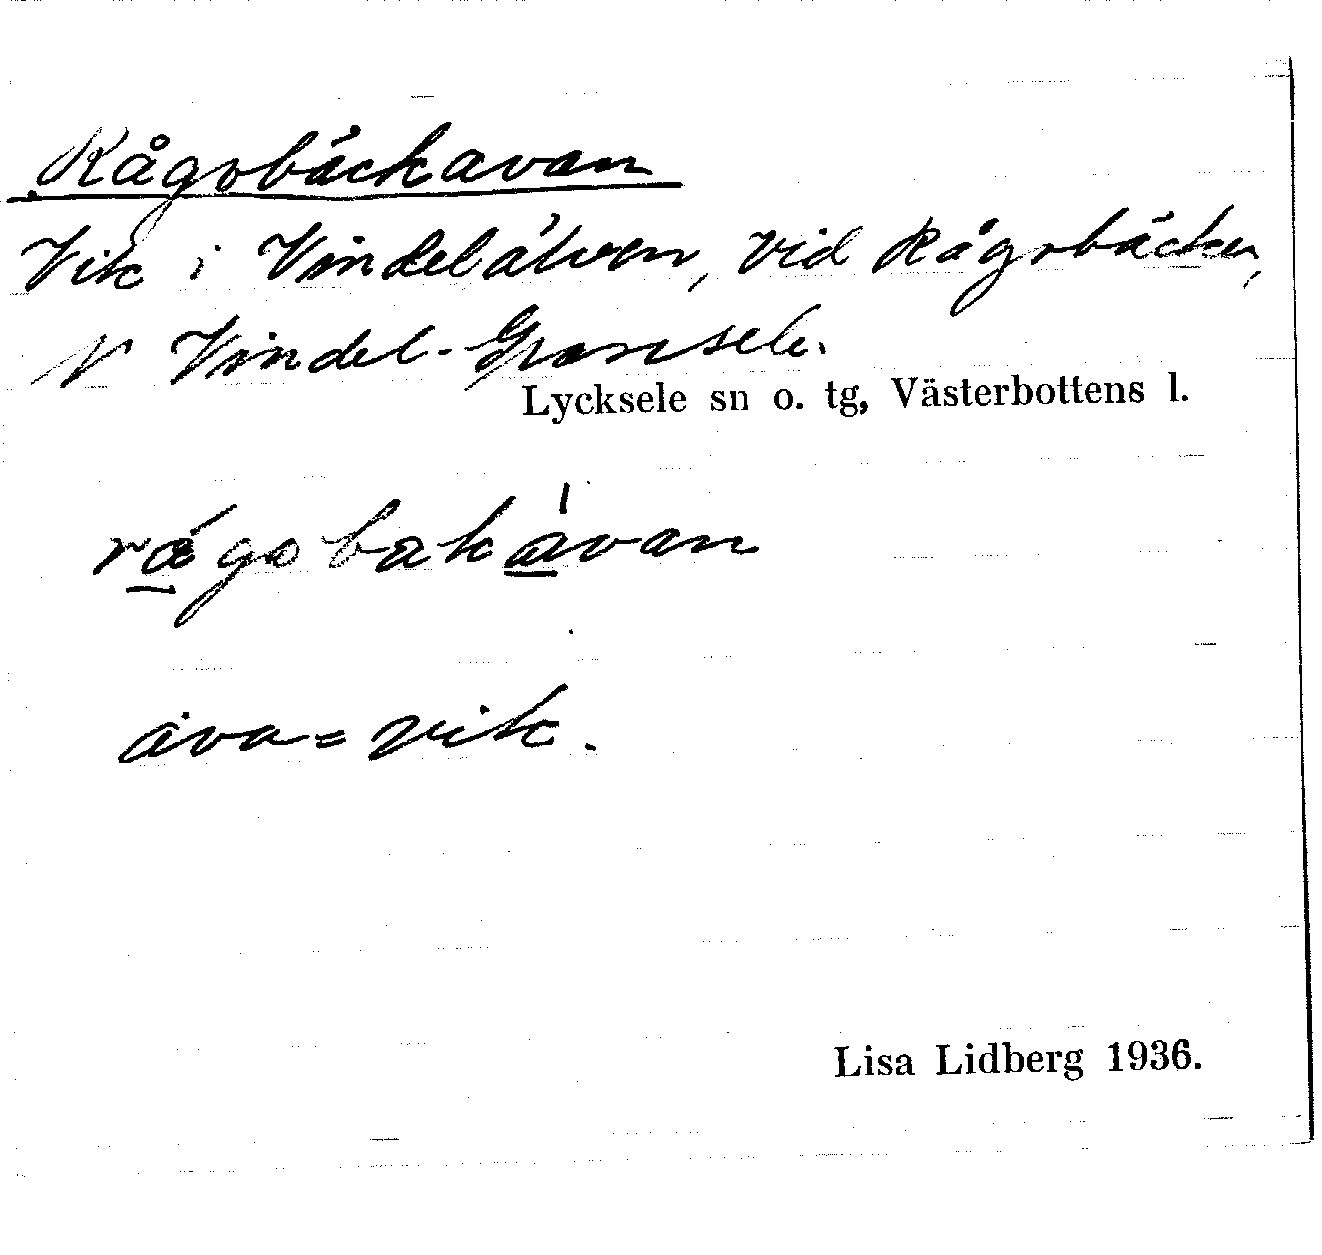 Rågobäckavan
Vik i Vindelälven, vid Rågobäcken,
N Vindel-Gransele.
Lycksele sn o. tg, Västerbottens l.
rǽgobakávan
ava = vik.
Lisa Lidberg 1936.